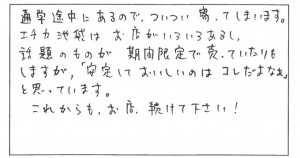 通学途中にあるので、ついつい寄ってしまいます。
エチカ池袋はお店がいろいろあるし、
話題のものが期間限定で売っていたりも
しますが、「安定しておいしいのはコレだよなぁ」
と思っています。
これからも、お店、続けて下さい！